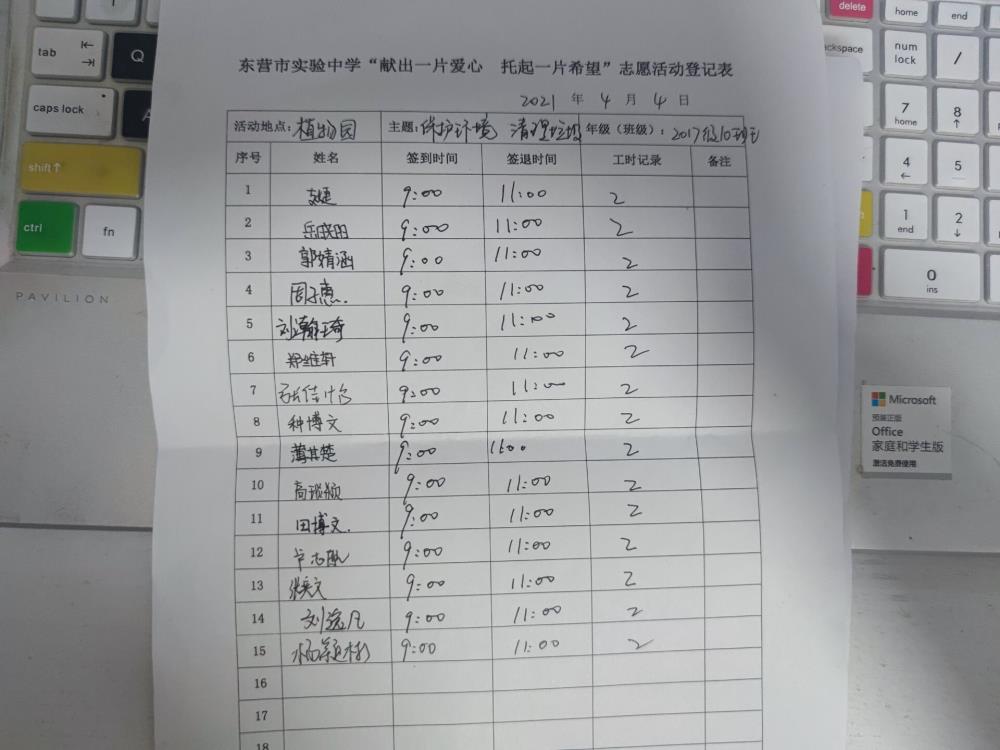 delete
home
end
tab
Q
ckspace
num lock
/
caps lock
A
7 home
8
shift
4
5
ctrl
fn
1 end
2
0 ins
PAVILION
东营市实验中学“献出一片爱心 托起一片希望”志愿活动登记表
2021 年 4 月 4 日
活动地点：植物园 主题：保护环境 清理垃圾 年级（班级）：2017级10班
序号 姓名 签到时间 签退时间 工时记录 备注
1 9:00 11:00 2
2 岳晓阳 9:00 11:00 2
3 郭婧涵 9:00 11:00 2
4 周子惠. 9:00 11:00 2
5 刘瀚琦 9:00 11:00 2
6 郑维轩 9:00 11:00 2
7 张佳怡 9:00 11:00 2
8 种博文 9:00 11:00 2
9 薄其楚 9:00 11:00 2
10 高 9:00 11:00 2
11 田博文. 9:00 11:00 2
12 9:00 11:00 2
13 张奕文 9:00 11:00 2
14 刘逸凡 9:00 11:00 2
15 杨颖彬 9:00 11:00 2
16
17
18
Microsoft
预装正版
Office
家庭和学生版
激活免费使用